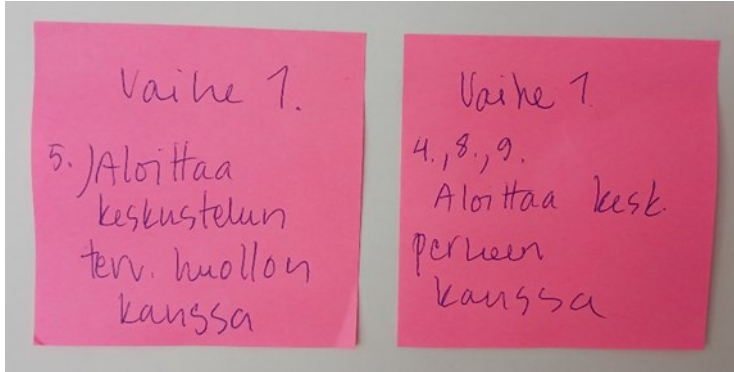 Vaihe 1.
5.) Aloittaa
keskustelun
terv. huollon
kanssa
Vaihe 1
4., 8., 9.
Aloittaa kesk.
perheen
kanssa